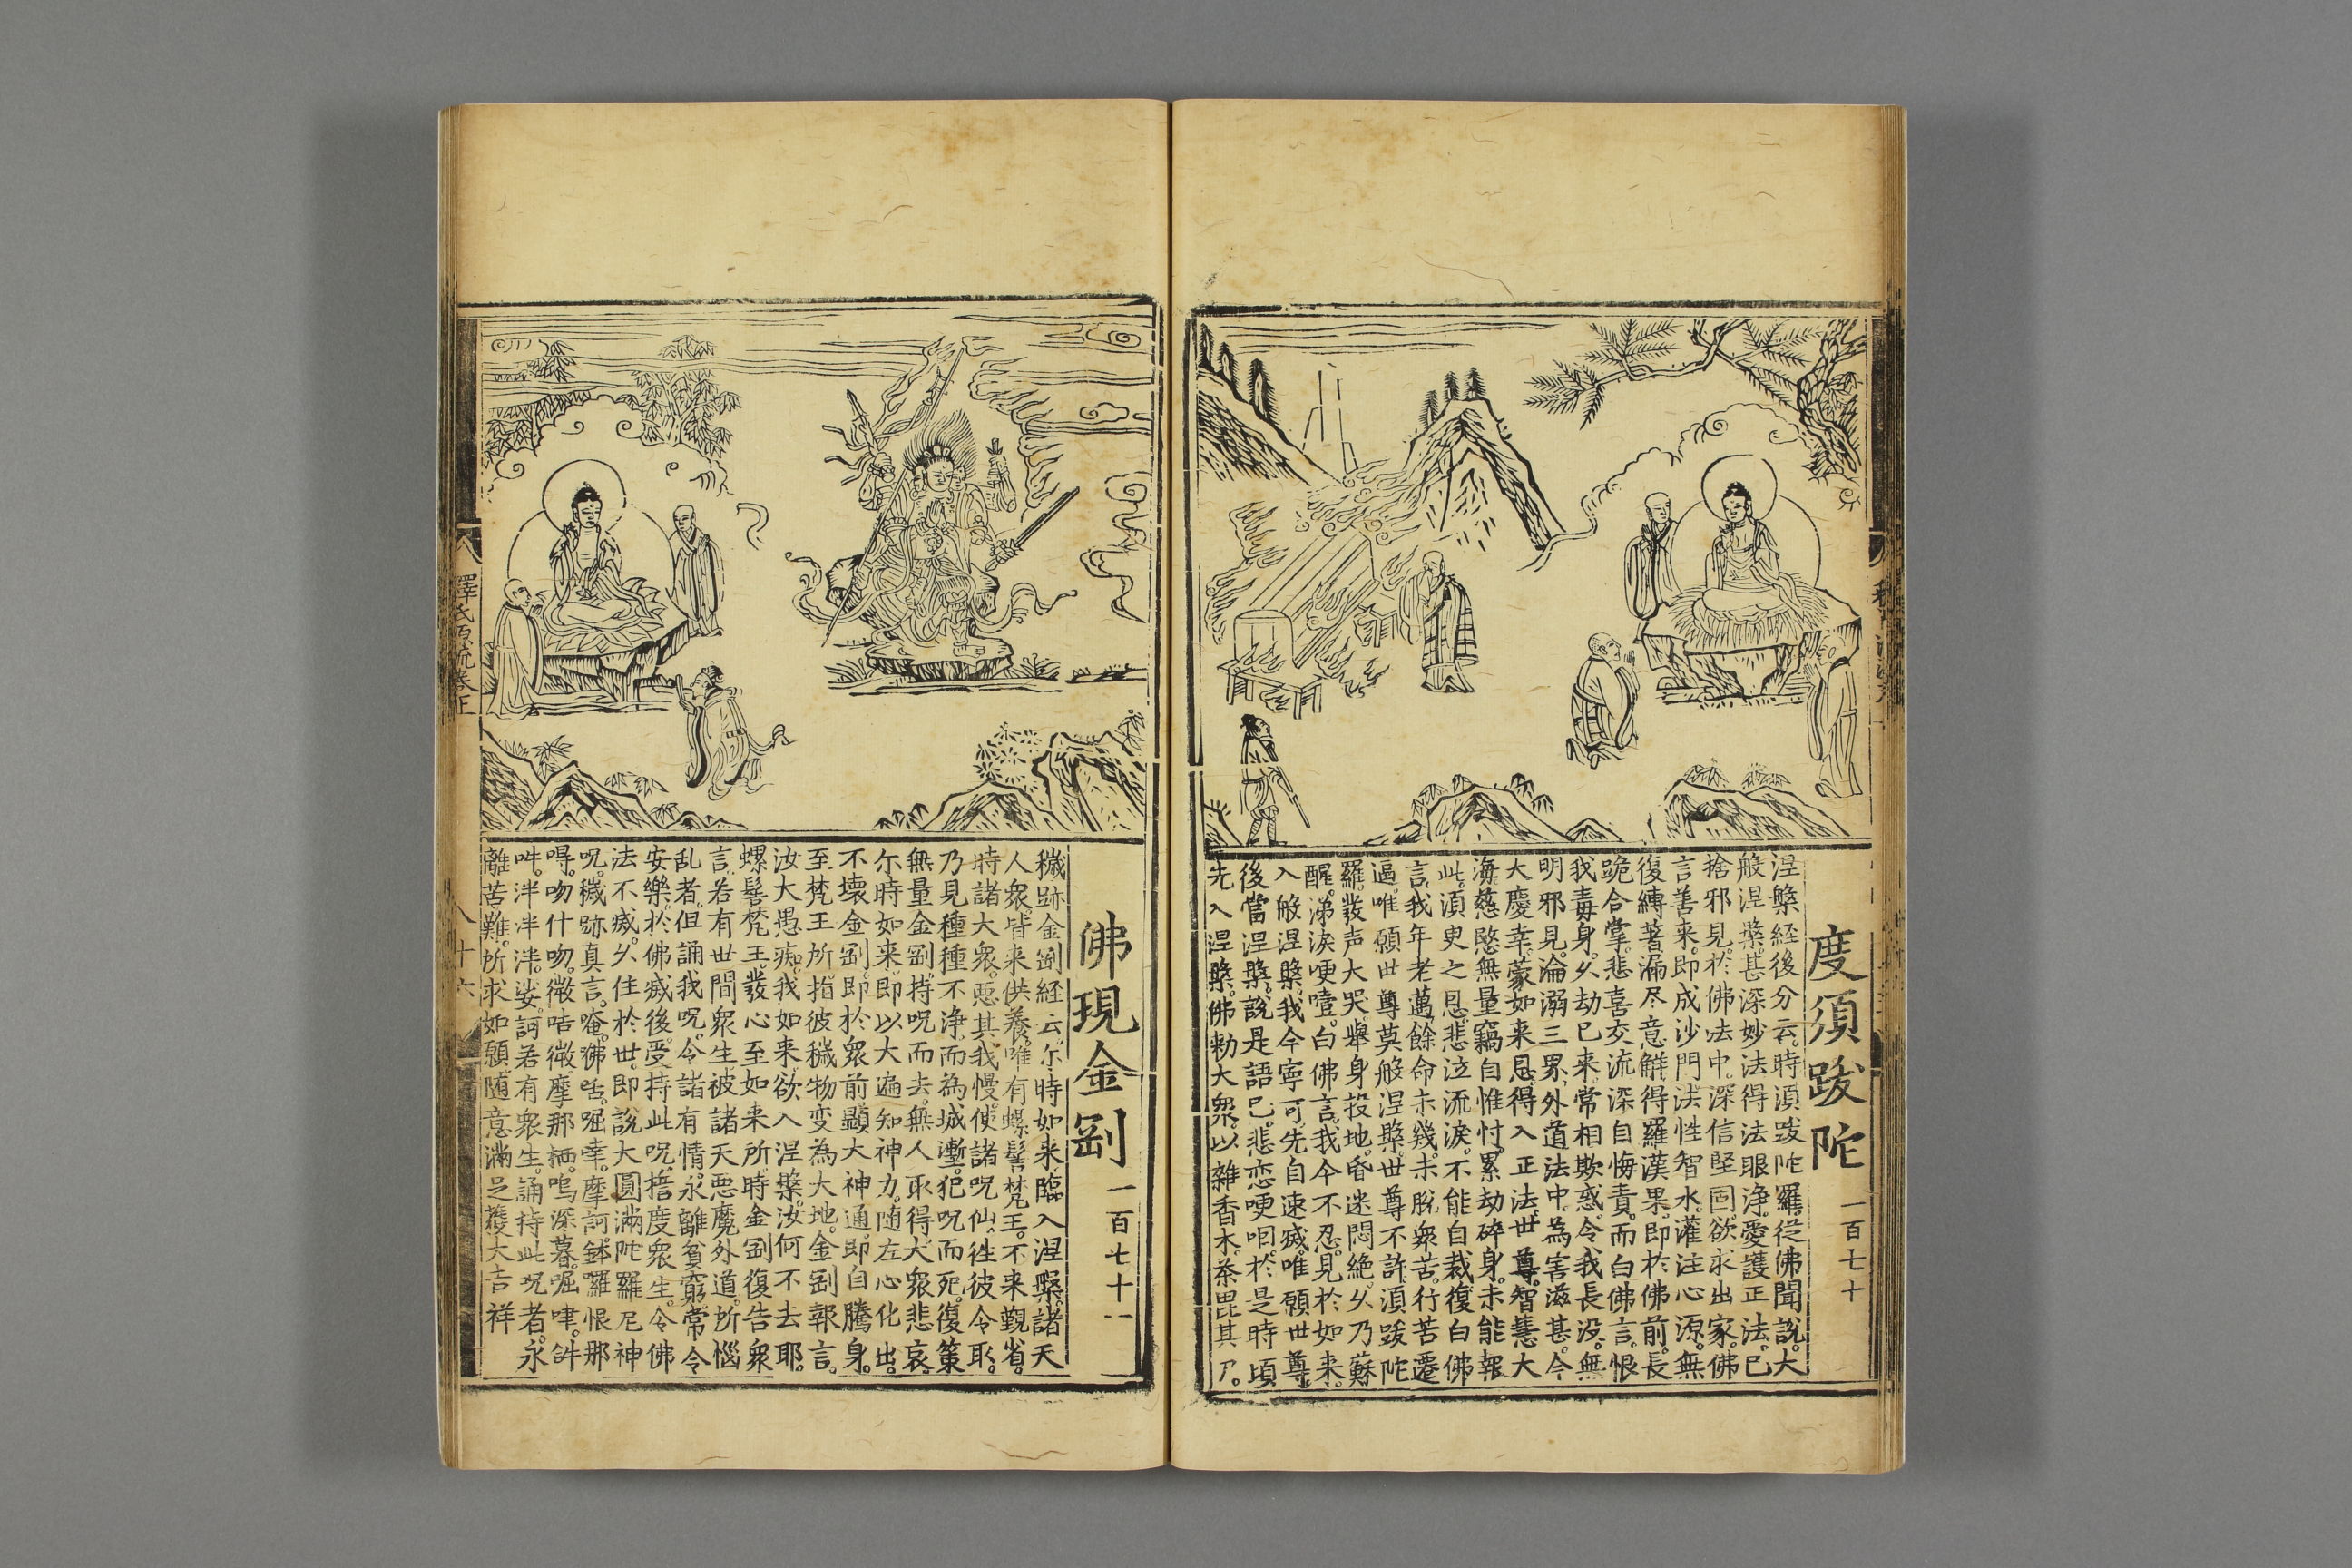 度須跋陀
一百七十
涅槃経後分云。時湏跋陀羅。従佛聞說。大
般涅槃。甚深妙法得法眼浄。愛護正法。已
捨邪見。於佛法中。深信堅固。欲求出家。佛
言善来。即成沙門。法性智水。灌注心源。無
復縛著。漏尽意觧。得羅漢果。即於佛前。長
跪合掌。悲喜交流。深自悔責。而白佛言。恨
我毒身。久劫已来。常相欺惑。令我長没。無
明邪見。淪溺三界。外道法中。為害滋甚。今
大慶幸。蒙如来恩。得入正法。世尊。智慧大
海。慈愍無量。竊自惟忖。累劫碎身。未能報
此。湏臾之恩。悲泣流淚。不能自裁。復白佛
言。我年老邁。餘命未幾。未脫衆苦。行苦遷
逼。唯願世尊莫般涅槃。世尊不許。湏跋陀
羅。發声大哭。舉身投地。昏迷悶絶。久乃蘇
醒。涕淚哽噎。白佛言。我今不忍。見於如来。
入般涅槃。我今寧可。先自速滅。唯願世尊
後當涅槃。說是語已。悲恋哽咽。於是時頃
先入涅槃。佛勑大衆。以雜香木。茶毘其尸。
佛現金剛
一百七十一
穢跡金剛経云。尓時如来。臨入涅槃。諸天
人衆。皆来供養。唯有螺髻梵王。不来覲省。
時諸大衆。惡其我慢。使諸呪仙。徃彼令取。
乃見種種不浄。而為城壍。犯呪而死。復策
無量金剛。持呪而去。無人取得。大衆悲哀。
尓時如来。即以大遍知神力。随左心化出。
不壊金剛。即於衆前。顯大神通。即自騰身。
至梵王所。指彼穢物。变為大地。金剛報言。
汝大愚痴。我如来。欲入涅槃。汝何不去耶。
螺髻梵王。發心至如来所。時金剛復告衆
言。若有世間衆生。被諸天惡魔外道。所惱
乱者。但誦我呪。令諸有情。永離貧窮。常令
安樂。於佛滅後。受持此呪。擔度衆生。令佛
法不滅。久住於世。即說大圓滿陀羅尼神
呪。穢跡真言。唵。狒咶。啒㖶。摩訶鉢囉恨那
㖶。吻什吻。微咭微摩那栖。嗚深暮。啒𡄦。𤙖
吽。泮泮泮。娑訶。若有衆生。誦持此呪者。永
離苦難。所求如願。随意滿足。獲大吉祥
釋氏源流卷上
八十六